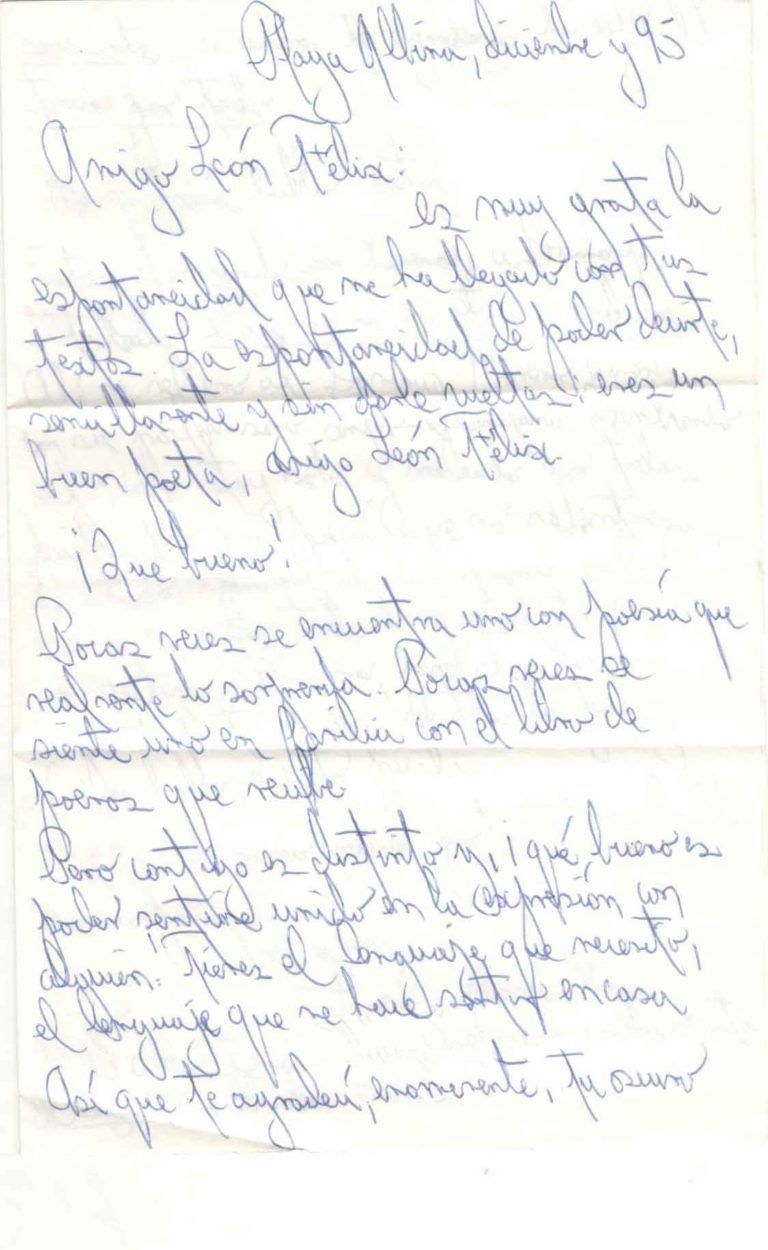 Playa Albina, diciembre y 95
Amigo León Félix:
es muy grata la
espontaneidad que me ha llegado con tus
textos. La espontaneidad de poder decirte,
sencillamente y sin darle vueltas: eres un
buen poeta, amigo León Félix.
¡Que bueno!
Pocas veces se encuentra uno con poesía que
realmente lo sorprenda. Pocas veces se
siente uno en familia con el libro de
poemas que recibe.
Pero contigo es distinto y, ¡qué bueno es
poder sentirse unido en la expresión con
alguien! Tienes el lenguaje que necesito,
el lenguaje que me hace sentir en casa
Así que te agradecí, enormemente, tu